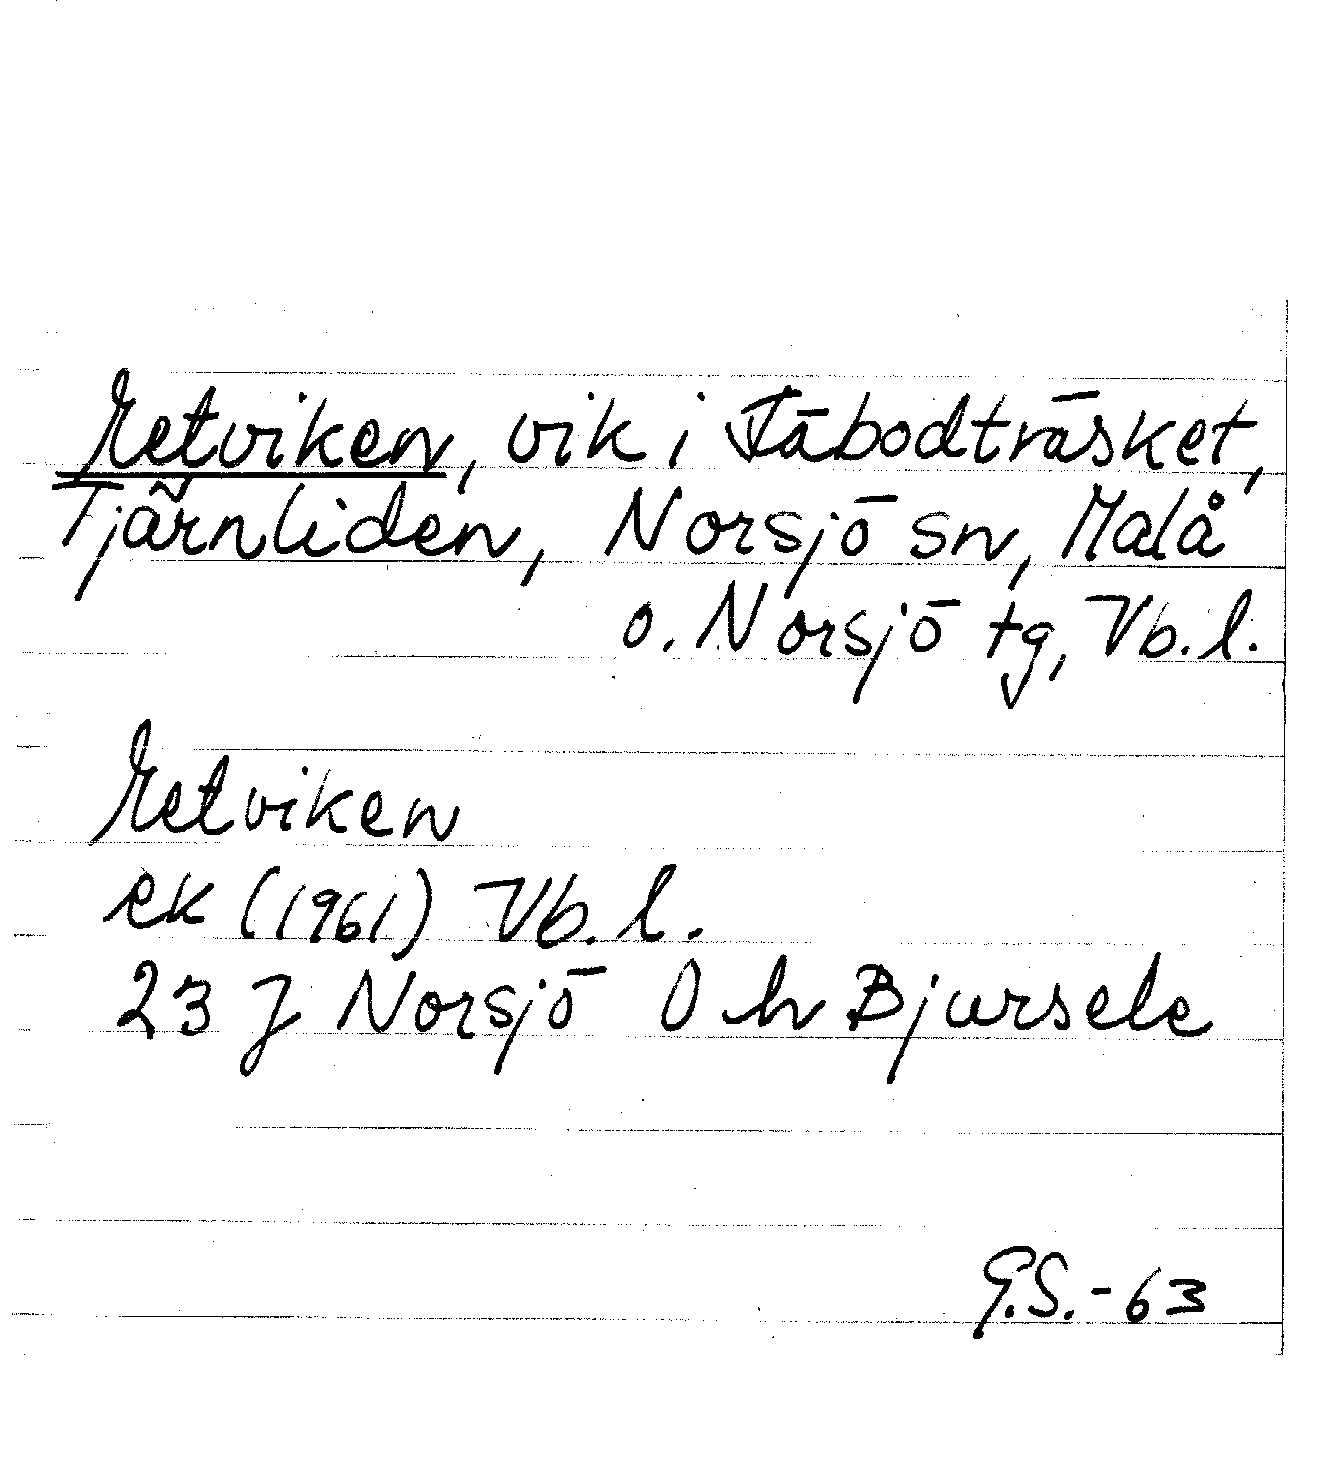 Metviken, vik i Fäbodträsket,
Tjärnliden, Norsjö sn, Malå
o. Norsjö tg, Vb.l.
Metviken
ek (1961) Vb.l.
23 J Norsjö O h Bjursele
G.S.-63